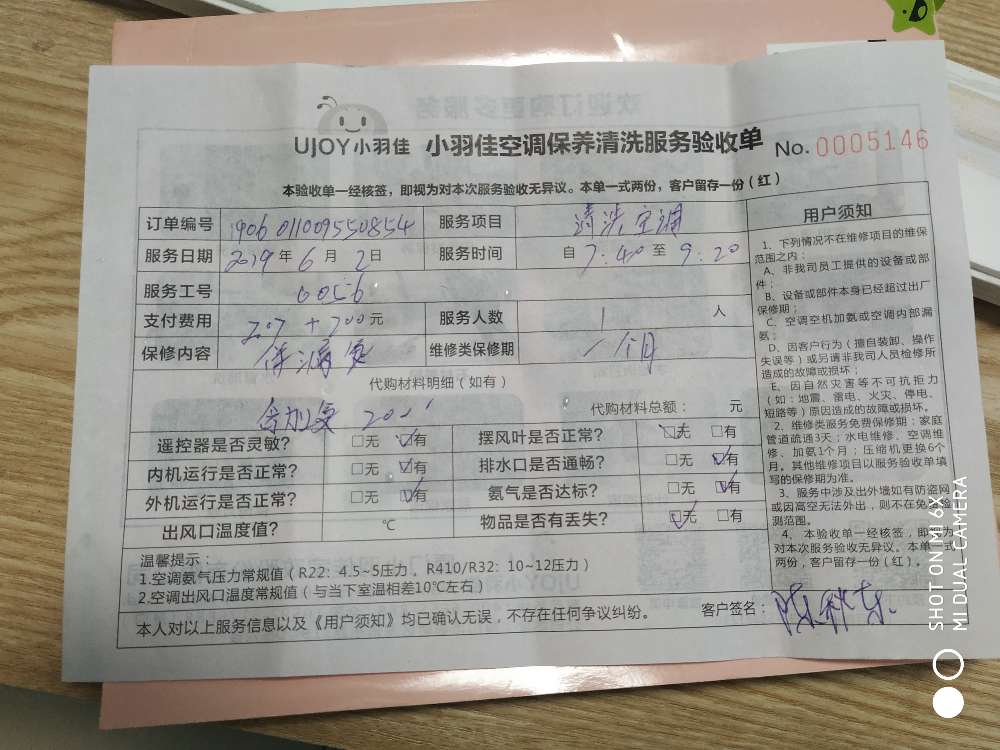 UJOY小羽佳 小羽佳空调保养清洗服务验收单 No. 0005146
本验收单一经核签，即视为对本次服务验收无异议。本单一式两份，客户留存一份（红）
订单编号 1906011009550854 服务项目 清洗空调
服务日期 2019年6月2日 服务时间 自7:40至9:20
服务工号 0056
支付费用 元 服务人数 1人
保修内容 维修类保修期 1个月
代购材料明细（如有）
代购材料总额： 元
遥控器是否灵敏? □无 ☑有 摆风叶是否正常? ☑无 □有
内机运行是否正常? □无 ☑有 排水口是否通畅? □无 ☑有
外机运行是否正常? □无 ☑有 氨气是否达标? □无 ☑有
出风口温度值? ℃ 物品是否有丢失? ☑无 □有
温馨提示：
1.空调氨气压力常规值（R22: 4.5~5压力，R410/R32: 10~12压力）
2.空调出风口温度常规值（与当下室温相差10℃左右）
本人对以上服务信息以及《用户须知》均已确认无误，不存在任何争议纠纷。 客户签名：
用户须知
1、下列情况不在维修项目的维保
范围之内：
A、非我司员工提供的设备或部
件；
B、设备或部件本身已经超过出厂
保修期；
C、空调空机加氨或空调内部漏
氨；
D、因客户行为（擅自装卸、操作
失误等）或另请非我司人员检修所
造成的故障或损坏；
E、因自然灾害等不可抗拒力
（如：地震、雷电、火灾、停电、
短路等）原因造成的故障或损坏。
2、维修类服务免费保修期：家庭
管道疏通3天；水电维修、空调维
修、加氨1个月；压缩机更换6个
月。其他维修项目以服务验收单填
写的保修期为准。
3、服务中涉及出外墙如有防盗网
或因高空无法外出，则不在免费检
测范围。
4、本验收单一经核签，即视为
对本次服务验收无异议。本单一式
两份，客户留存一份（红）。
SHOT ON MI 6X
MI DUAL CAMERA